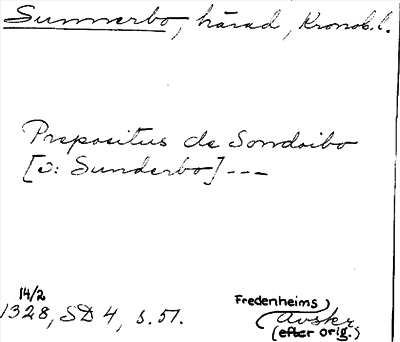 Sunnerbo, härad, Kronob. l.
Prepositus de Sondoibo
[ɔ: Sunderbo] ---
14/2
1328, SD 4, s. 51.
Fredenheims
Avskr.
(efter orig.)